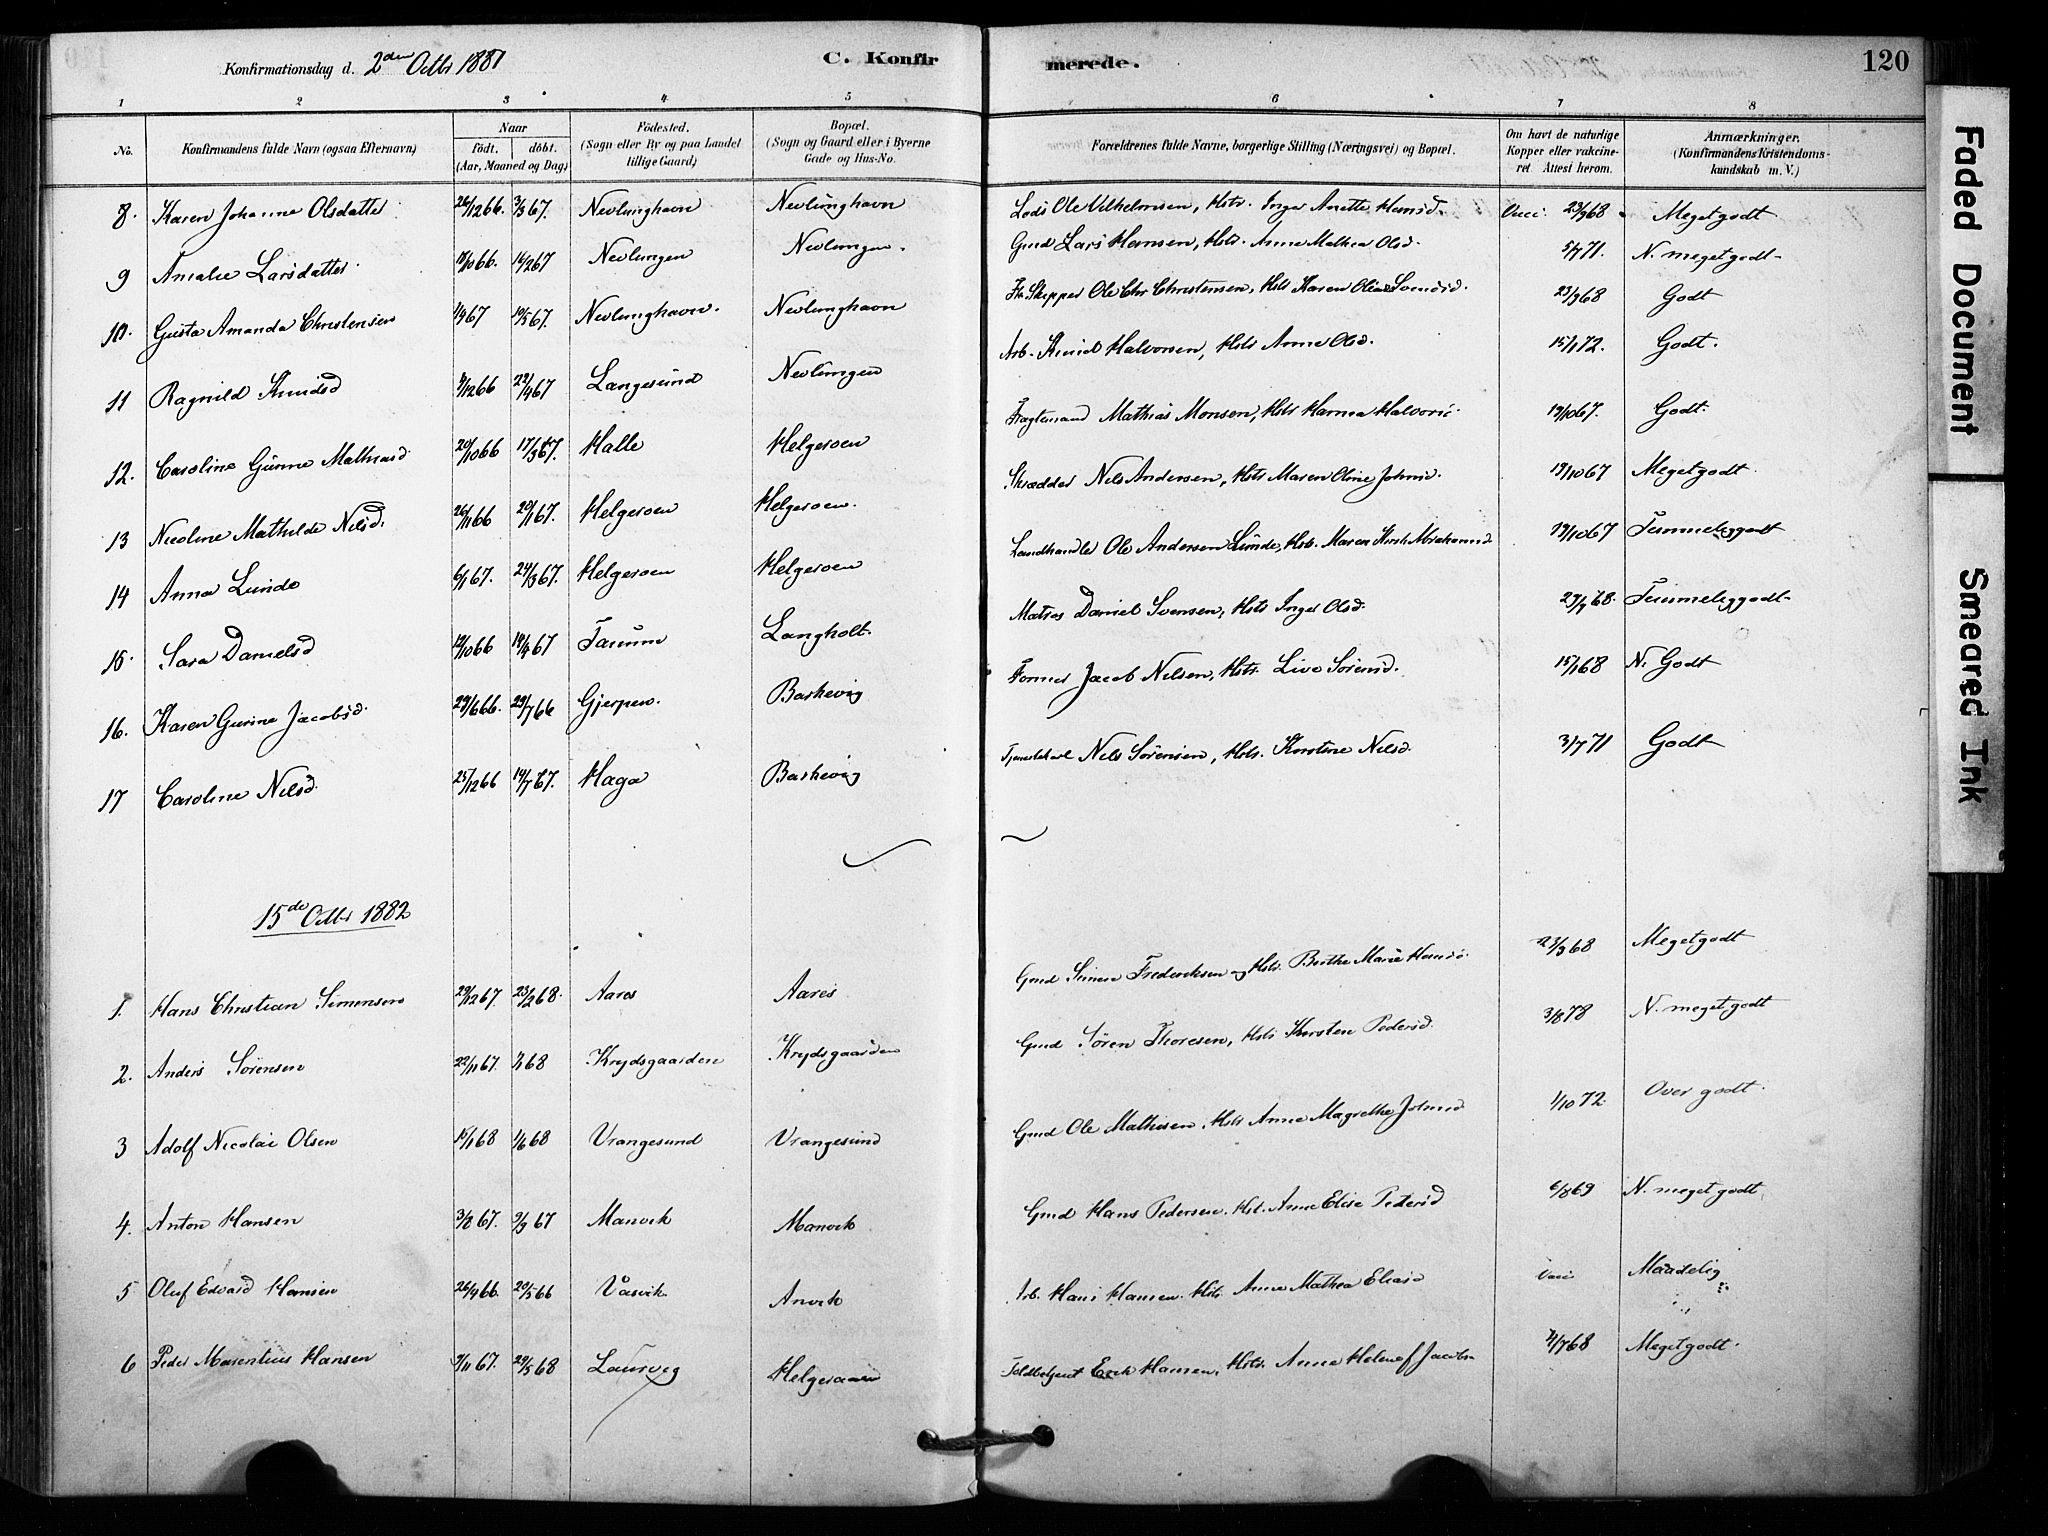 Konfirmationsdag d. 2den Octbr 1881 C. Konfirmerede. 120
1 2 3 4 5 6 7 8
No. Konfirmandens fulde Navn (ogsaa Efternavn) Naar födt. döbt. (Aar, Maaned og Dag) Födested. (Sogn eller By og paa Landet tillige Gaard) Bopæl. (Sogn og Gaard eller i Byerne Gade og Hus-No. Forældrenes fulde Navne, borgerlige Stilling (Næringsvei) og Bopæl. Om havt de naturlige Kopper eller vakcineret Attest herom. Anmærkninger, (Konfirmandens Kristendomskundskab m. V.)
8. Karen Johanne Olsdatter 26/12 66. 3/3 67. Nevlunghavn Nevlunghavn Lods Ole Vilhelmsen, Hstr. Inger Anette Hansd. Vacc. 23/9 68 Megetgodt
9 Amalie Larsdatter 18/10 66. 16/2 67 Nevlungen Nevlungen. Gmd Lars Hansen, Hstr. Anne Mathea Olsd. 5/7 71. N. meget godt
10. Gusta Amanda Christensen 1/3 67 19/5 67. Nevlunghavn. Nevlunghavn Fh. Skipper Ole Chr Christensen, Hstr Karen Oline Svendsd. 23/9 68 Godt
11 Ragnild Knudsd 9/12 66 22/4 67 Langesund Nevlungen Arb. Knud Halvorsen, Hstr Anne Olsd. 15/1 72. Godt.
12. Caroline Gunne Mathiasd 20/10 66 17/3 67. Halle Helgeroen Fragtemand Mathias Monsen, Hstr Hanna Halvors. 19/10 67. Godt.
13 Nicoline Mathilde Nilsd. 26/11 66 20/1 67. Helgeroen Helgeroen. Skrædder Nils Andersen, Hstr Maren Oline Johnsd. 19/10 67 Megetgodt.
14 Anna Lunde 6/1 67. 24/3 67. Helgeroen Helgeroen Landhandler Ole Andersen Lunde, Hstr. Maren Kirst. Abrahamsd 19/10 67 Temmeliggodt
15. Sara Danielsd 12/10 66 19/4 67 Tanum Langholt. Matros Daniel Svensen, Hstr Inger Olsd. 29/9 68. Temmeliggodt
16. Karen Gurine Jacobsd. 29/6 66. 29/7 66 Gjerpen. Barkevig Former Jacob Nilsen, Hstr. Live Sörensd. 15/1 68 N. Godt
17 Caroline Nilsd. 25/12 66 14/7 67. Haga Barkevig Tjenestekarl Nils Sörensen, Hstr. Kirstine Nilsd. 3/7 71 Godt
15de Octbr 1882
1. Hans Christian Simensen 29/12 67. 23/2 68. Aarøs Aarøs Gmd Simen Frederiksen og Hstr. Berthe Marie Hansd. 23/9 68 Megetgodt
2. Anders Sörensen 22/11 67. 1/1 68 Krydsgaarden Krydsgaarden Gmd Sören Thoresen, Hstr Kirsten Pedersd. 3/8 78 N. megetgodt
3 Adolf Nicolai Olsen 15/1 68 1/6 68 Vrangesund Vrangesund Gmd Ole Mathisen. Hstr Anne Magrethe Johnsd 1/10 72 Over godt.
4. Anton Hansen 3/8 67. 9/9 67 Manvik Manvik Gmd Hans Pedersen. Hst. Anne Elise Pedersd 6/8 69 N. meget godt
5 Oluf Edvard Hansen 26/4 66. 20/5 66 Vasvik Anvik Arb. Hans Hansen. Hstr. Anne Mathea Eliasd Vacc Maadelig
6 Peder Marentius Hansen 9/11 67. 29/3 68 Laurvig Helgeraaen Toldbetjent Erik Hansen, Hstr. Anne Helene f Jacobs- 4/7 68 Megetgodt.
Faded Document
Smeared Ink